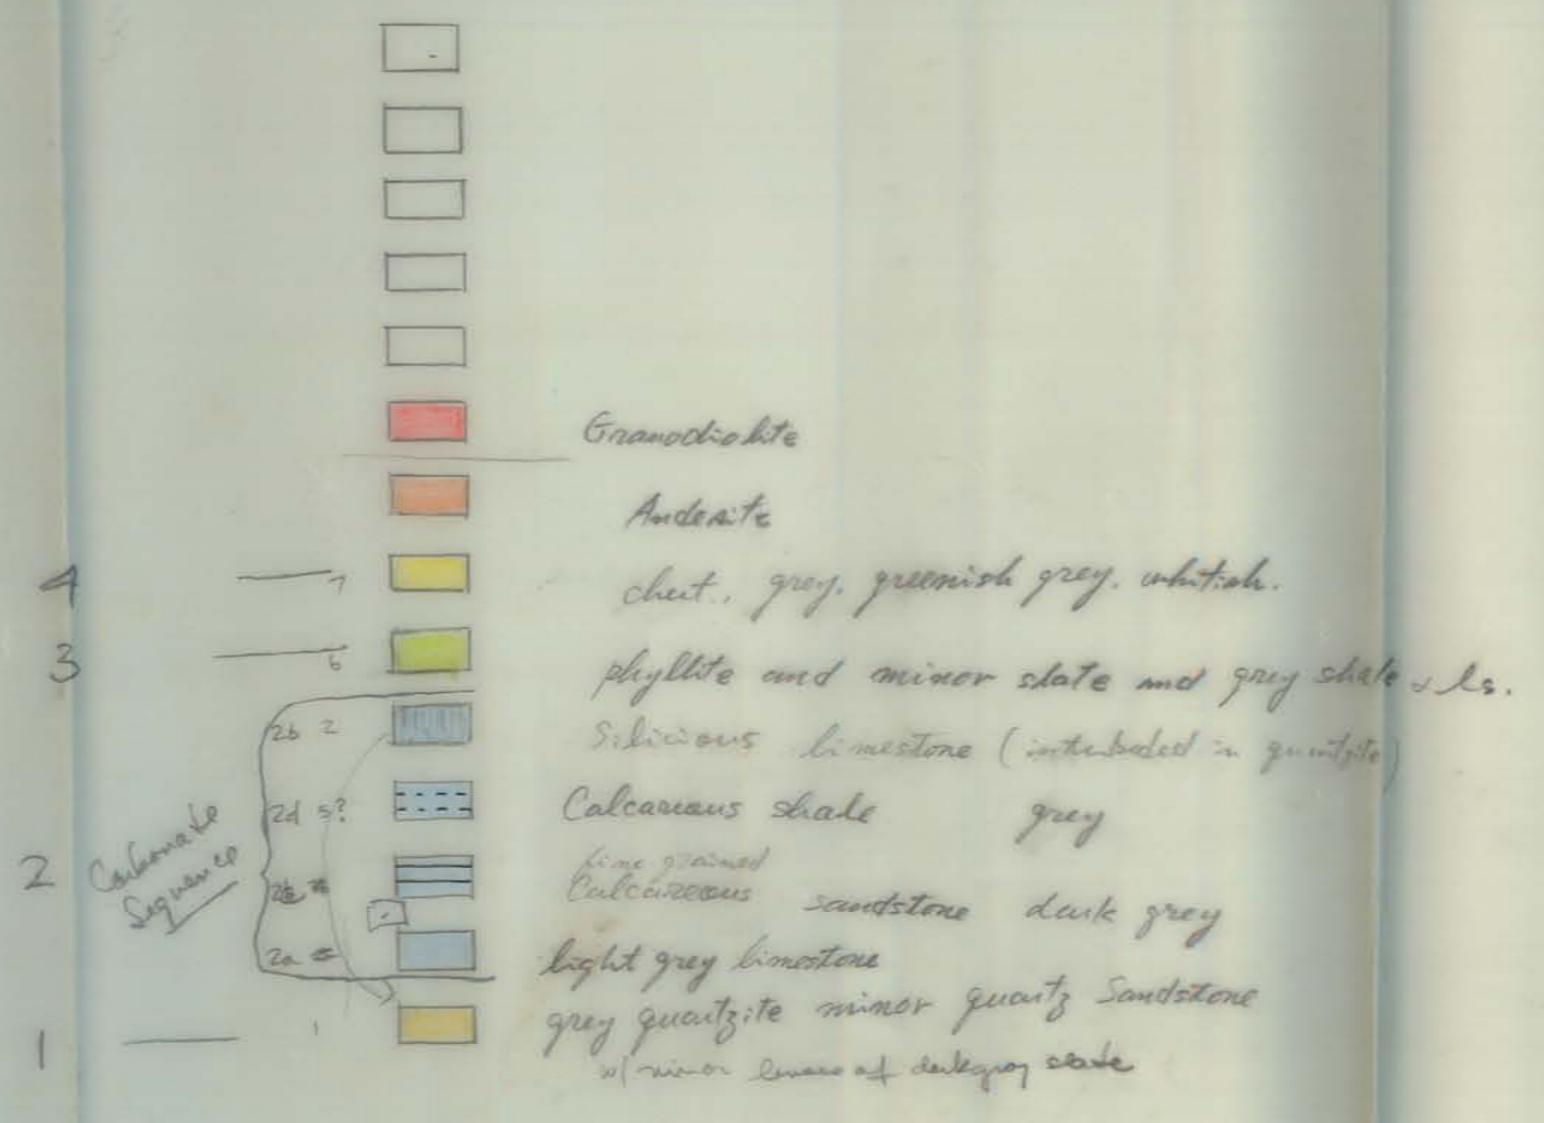 Granodiolite
Andesite
4 7 chert., grey, greenish grey. whitish.
3 6 phyllite and minor slate and grey shale & ls.
2b 2 Silicious limestone (interbeded in quartzite)
2d 5? Calcareous shale grey
fine grained
2 Carbonate Sequence Calcareous sandstone dark grey
2a light grey limestone
1 1 grey quartzite minor quartz Sandstone
w/ minor lenses of dark gray slate